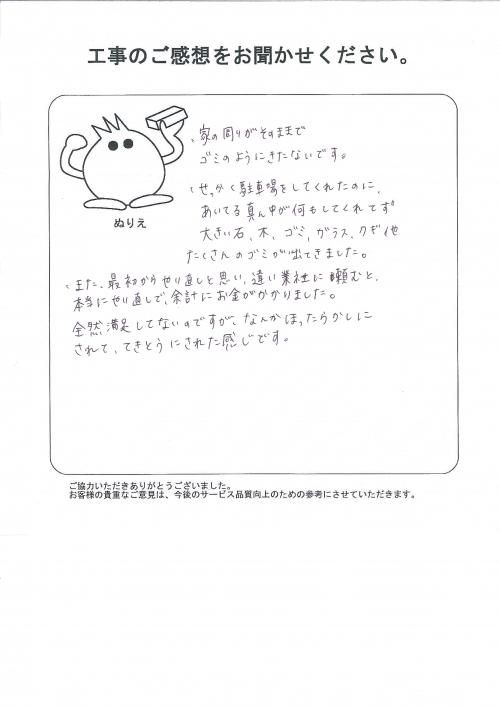 工事のご感想をお聞かせください。
、家の周りがそのままで
ゴミのようにきたないです。
、せっかく駐車場をしてくれたのに、
あいてる真ん中が何もしてくれてず
大きい石、木、ゴミ、ガラス、クギ、他
たくさんのゴミが出てきました。
、また、最初からやり直しと思い、違い業社に願むと、
本当にやり直しで、余計にお金がかかりました。
全然満足してないのですが、なんかほったらかしに
されて、てきとうにされた感じです。
ぬりえ
ご協力いただきありがとうございました。
お客様の貴重なご意見は、今後のサービス品質向上のための参考にさせていただきます。